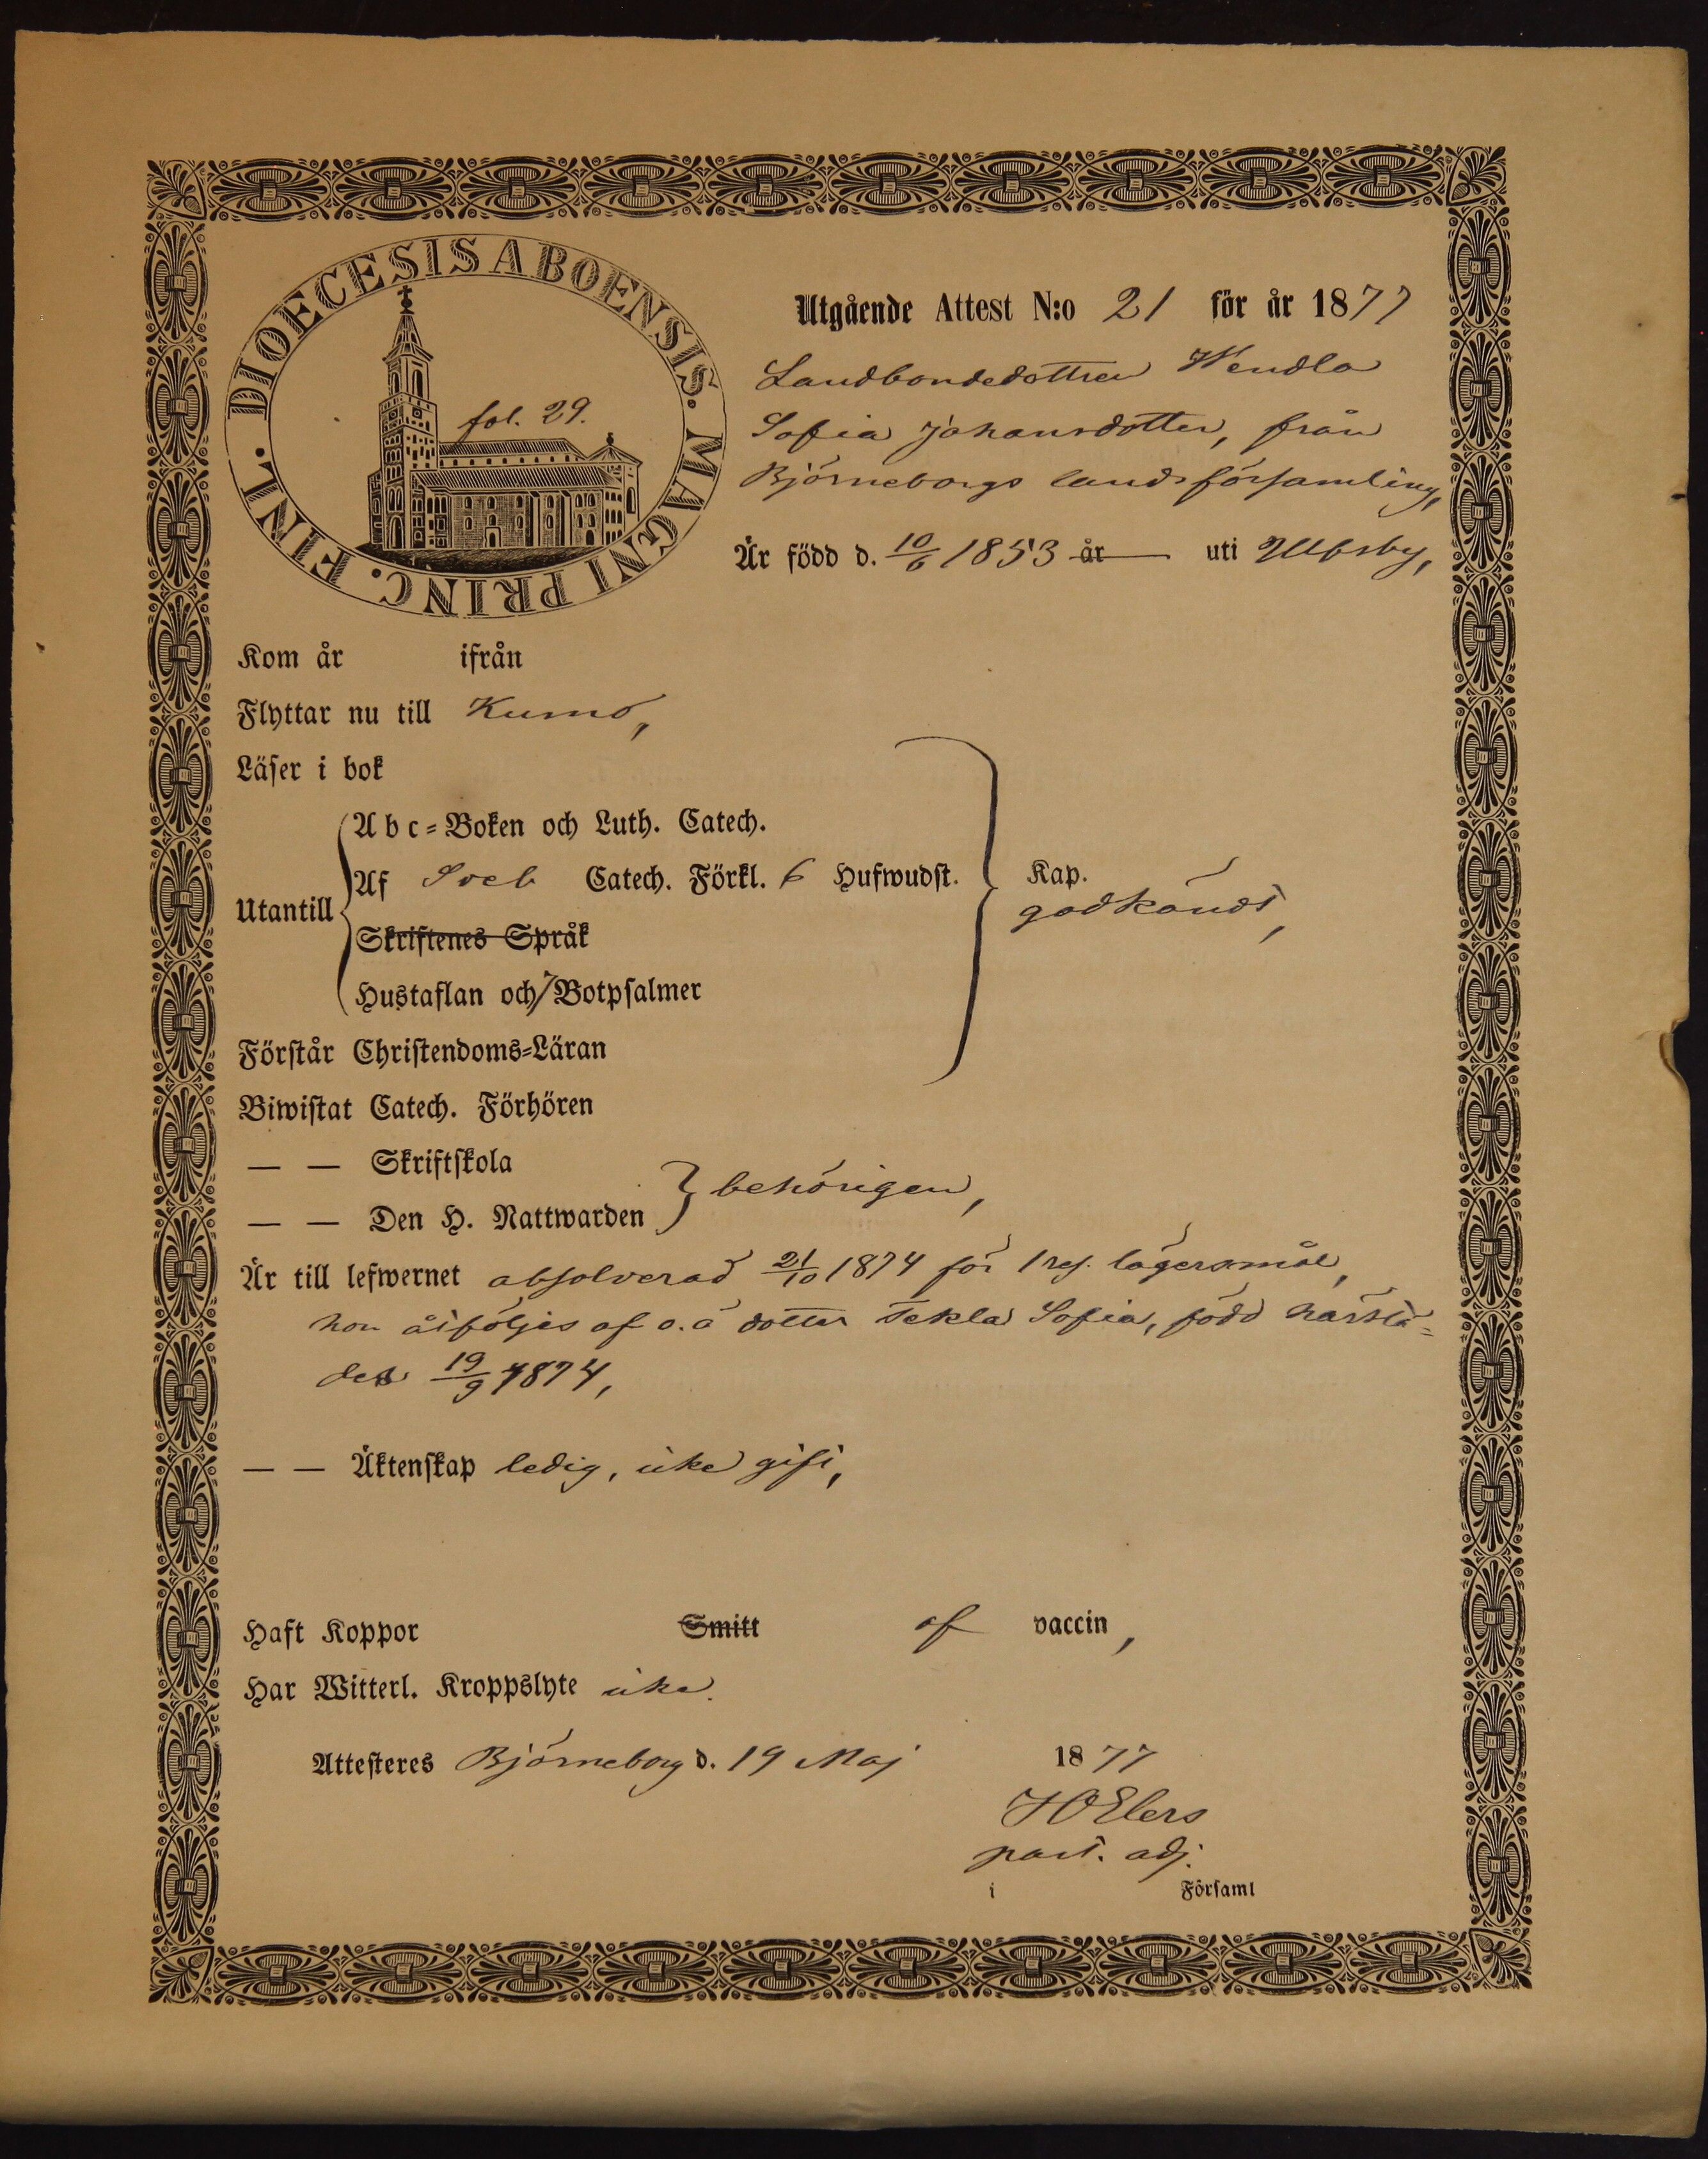 DIOECESIS ABOENSIS. MAGNI PRINC. FINL.
fol. 29.
Utgående Attest N:o 21 för år 1877
Landbondedottren Wendla
Sofia Johansdotter, från
Björneborgs landsförsamling,
Är född d. 10/6 1853 år uti Ulfsby,
Kom år ifrån
Flyttar nu till Kumo,
Läser i bok
Utantill
Abc-Boken och Luth. Catech.
Af Sveb Catech. Förkl. 6 Hufwudst. Kap.
godkändt,
Skriftenes Språk
Hustaflan och 7 Botpsalmer
Förstår Christendoms-Läran
Biwistat Catech. Förhören
— — Skriftskola
behörigen,
— — Den H. Nattwarden
Är till lefwernet absolverad 21/10 1874 för 1 res. lägersmål,
hon åtföljes af o.ä dotter Tekla Sofia, född härstä-
des 19/9 1874,
— — Äktenskap ledig, icke gift,
Haft Koppor Smitt af vaccin,
Har Witterl. Kroppslyte icke.
Attesteres Björneborg d. 19 Maj 1877
H O Elers
past. adj.
i Församl